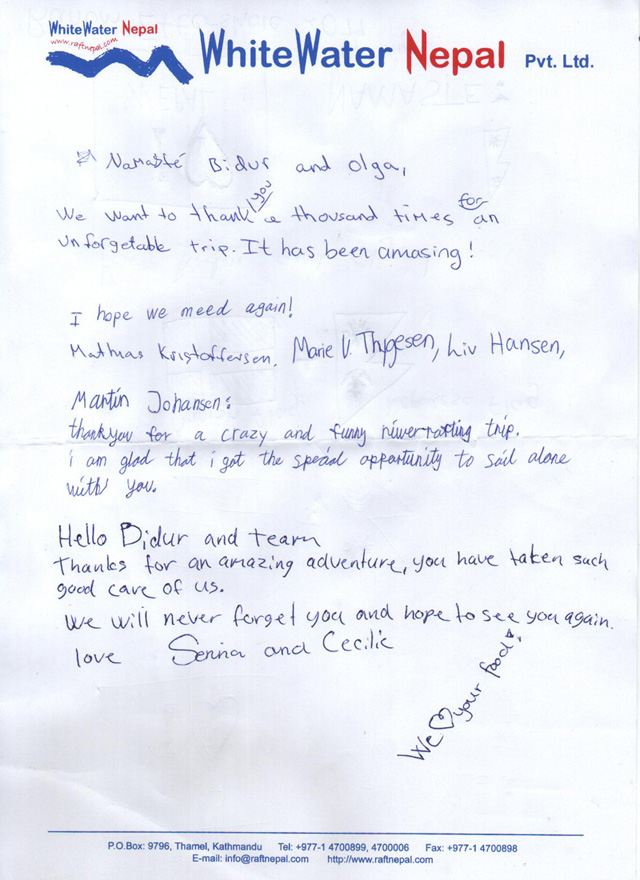 WhiteWater Nepal
www.raftnepal.com
WhiteWater Nepal Pvt. Ltd.
Namasté Bidur and Olga,
We want to thank you a thousand times for an
unforgetable trip. It has been amasing!
I hope we meed again!
Mathias Kristoffersen, Marie V. Thygesen, Liv Hansen,
Martin Johansen:
thankyou for a crazy and funny riwerrafting trip.
i am glad that i got the special opportunity to sail alone
with you.
Hello Bidur and team
Thanks for an amazing adventure, you have taken such
good care of us.
We will never forget you and hope to see you again.
love Senna and Cecilie
We ♡ your food!
P.O.Box: 9796, Thamel, Kathmandu Tel: +977-1 4700899, 4700006 Fax: +977-1 4700898
E-mail: info@raftnepal.com http://www.raftnepal.com